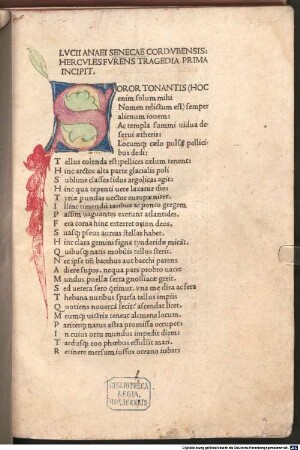 LVCII ANAEI SENECAE CORDVBENSIS:
HERCVLES FVRENS TRAGEDIA PRIMA
INCIPIT.
SOROR TONANTIS (HOC
enim solum mihi
Nomen relictum est) semper
alienum iouem:
Ac templa summi uidua de
serui ætheris:
Locumq; cælo pulsa pellici
bus dedi:
Tellus colenda est: pellices cælum tenent:
Hinc arctos alta parte glacialis poli
Sublime classes sidus argolicas agit:
Hinc qua tepenti uere laxatur dies
Tyriæ pundas uector europæ nitet.
passim uagantes exerunt atlantides.
Fera coma hinc exterret orion deos.
Suasq; pseus aureas stellas habet.
Hinc clara gemini signa tyndaridæ micāt.
Quibusq; natis mobilis tellus stetit.
Nec ipse tm̄ bacchus aut bacchi parens
Adiere supos. nequa pars probro uacet
Mundus puellæ serta gnossiacæ gerit.
Sed uetera sero q̄rimur. una me dira ac fera
Thebana nuribus sparsa tellus impiis
Quotiens nouercā fecit? ascendat licet.
Meumq; uictrix teneat alcmene locum.
Pariterq; natus astra promissa occupet
In cuius ortu mundus impedit diem:
Tardusq; eoo phœbus effulsit mari.
Retinere mersum iussus oceano iubar:
BIBLIOTHECA
REGIA
MONACENSIS